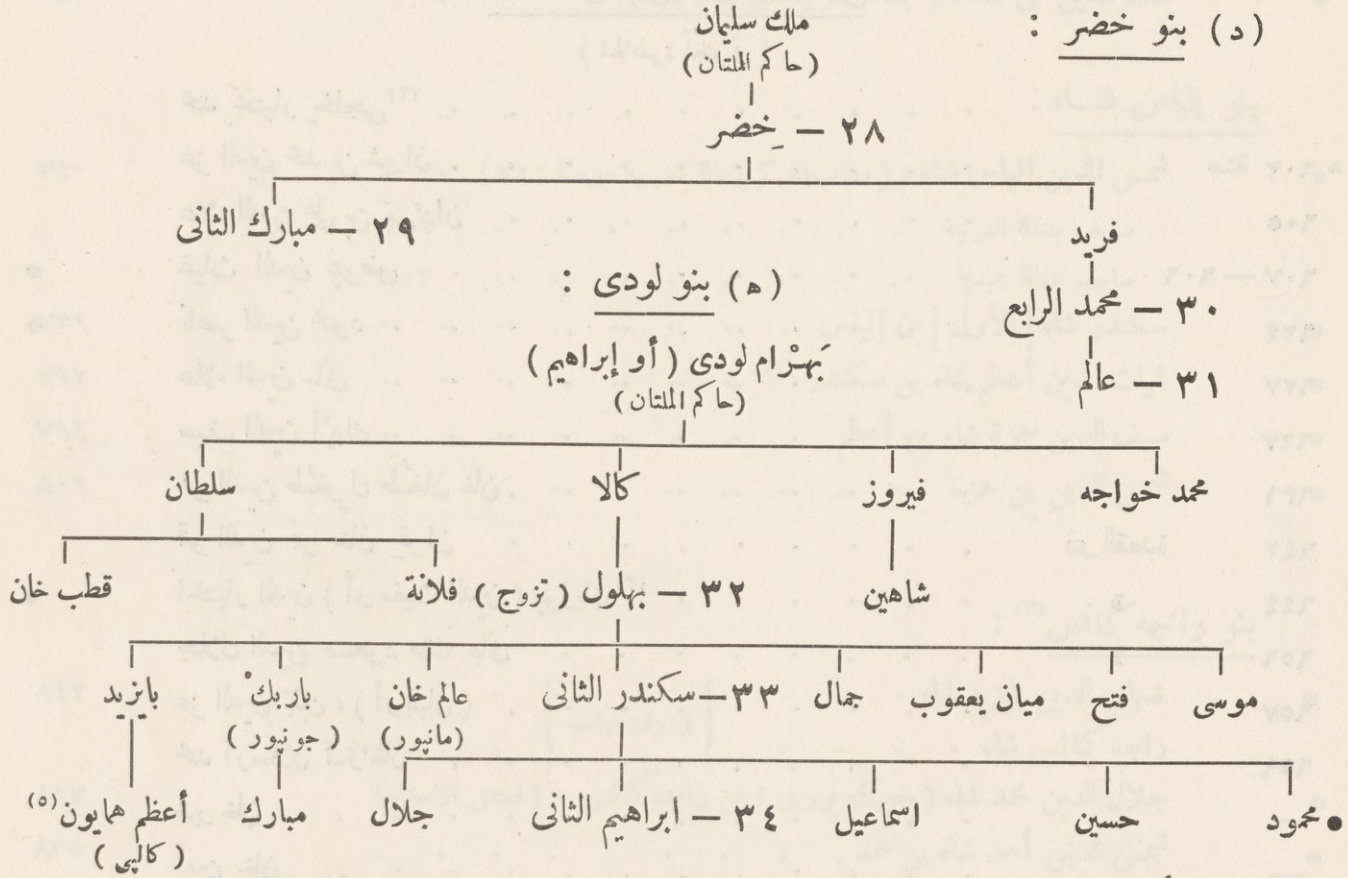 (د) بنو خضر :
ملك سليمان
(حاكم الملتان)
٢٨ — خِضر
فريد
٢٩ — مبارك الثانى
٣٠ — محمد الرابع
٣١ — عالم
(ه) بنو لودى :
بَهْرام لودى (أو إبراهيم)
(حاكم الملتان)
محمد خواجه فيروز كالا سلطان
شاهين ٣٢ — بهلول (تزوج) فلانة قطب خان
موسى فتح ميان يعقوب جمال ٣٣ — سكندر الثانى عالم خان باربكْ بايزيد
(مانپور) (جونپور)
• محمود حسين اسماعيل ٣٤ — ابراهيم الثانى جلال مبارك أعظم همايون (٥)
(كالپى)